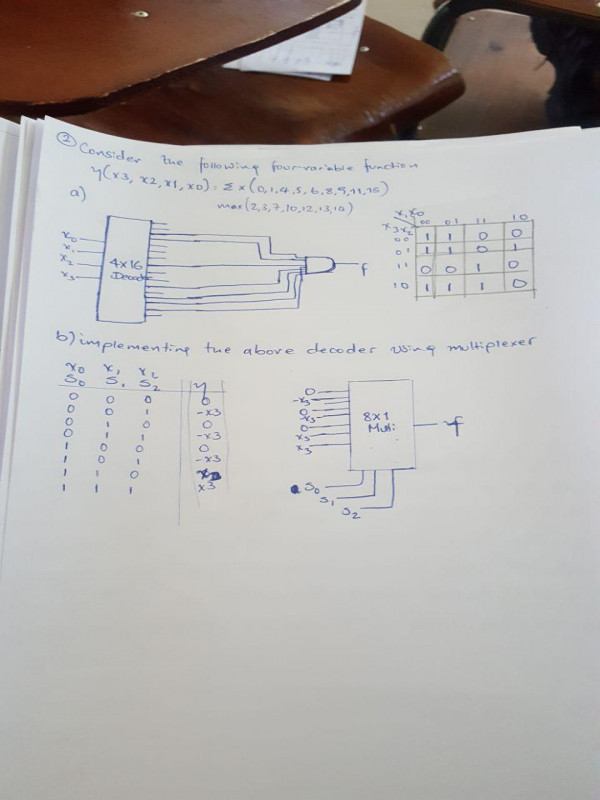 ② Consider the following four-variable function
y(x3, x2, x1, x0) = Σ x (0,1,4,5,6,8,9,11,15)
max (2,3,7,10,12,13,14)
a)
x0
x1
x2
x3
4x16
Decoder
f
x1x0
x3x2 00 01 11 10
00 1 1 0 0
01 1 1 0 1
11 0 0 1 0
10 1 1 1 0
b) implementing the above decoder using multiplexer
x0 x1 x2
S0 S1 S2 y
0 0 0 0
0 0 1 -x3
0 1 0 0
0 1 1 -x3
1 0 0 0
1 0 1 -x3
1 1 0
1 1 1 x3
0
-x3
0
-x3
0
x3
x3
8x1
Mul:
f
S0
S1
S2